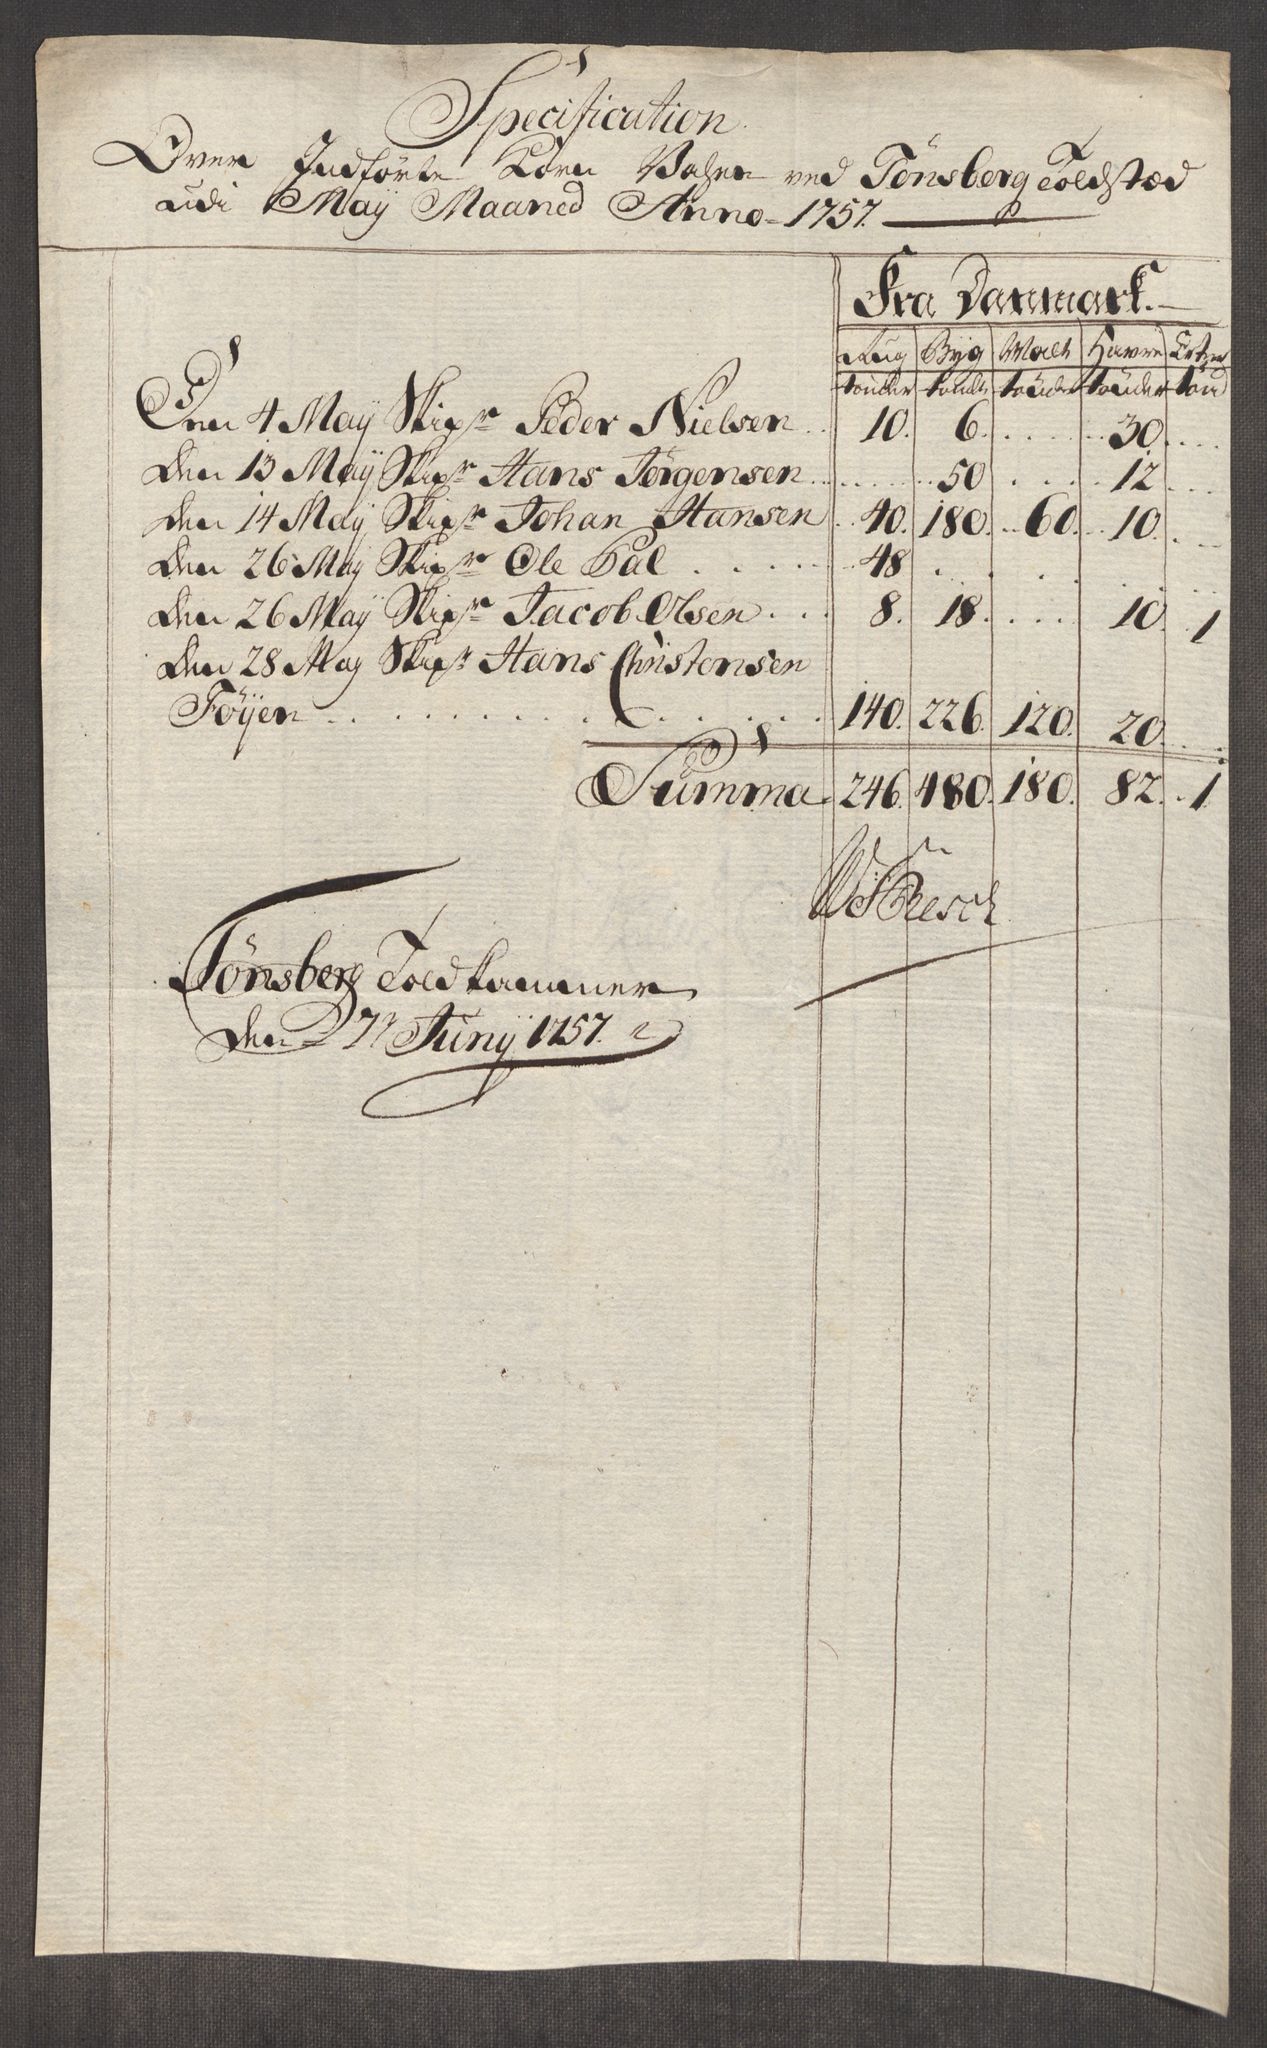 Specification
Over Indførte Korn Vahre ved Tönsberg Toldstæd
udi May Maaned Anno 1757.
Fra Danmark.
Rug Byg Malt Havre Ertzer
tönder tönder tönder tönder tönd
Den 4 May Skipr Peder Nielsen .. 10. 6. ..... 30. ....
Den 13 May Skipr Hans Jørgensen ....... 50 .... 12 ...
Den 14 May Skipr Johan Hansen .. 40. 180. .. 60. .. 10. ...
Den 26 May Skipr Ole Pal ...... 48 .....
Den 26 May Skipr Jacob Olsen ... 8. 18. .... 10. .. 1
Den 28 May Skipr Hans Christensen
Föyen ........... 140. 226. 120. 20. ...
Summa 246. 480. 180. 82. .. 1.
Tönsberg Toldkammer
den 7r Junij 1757.